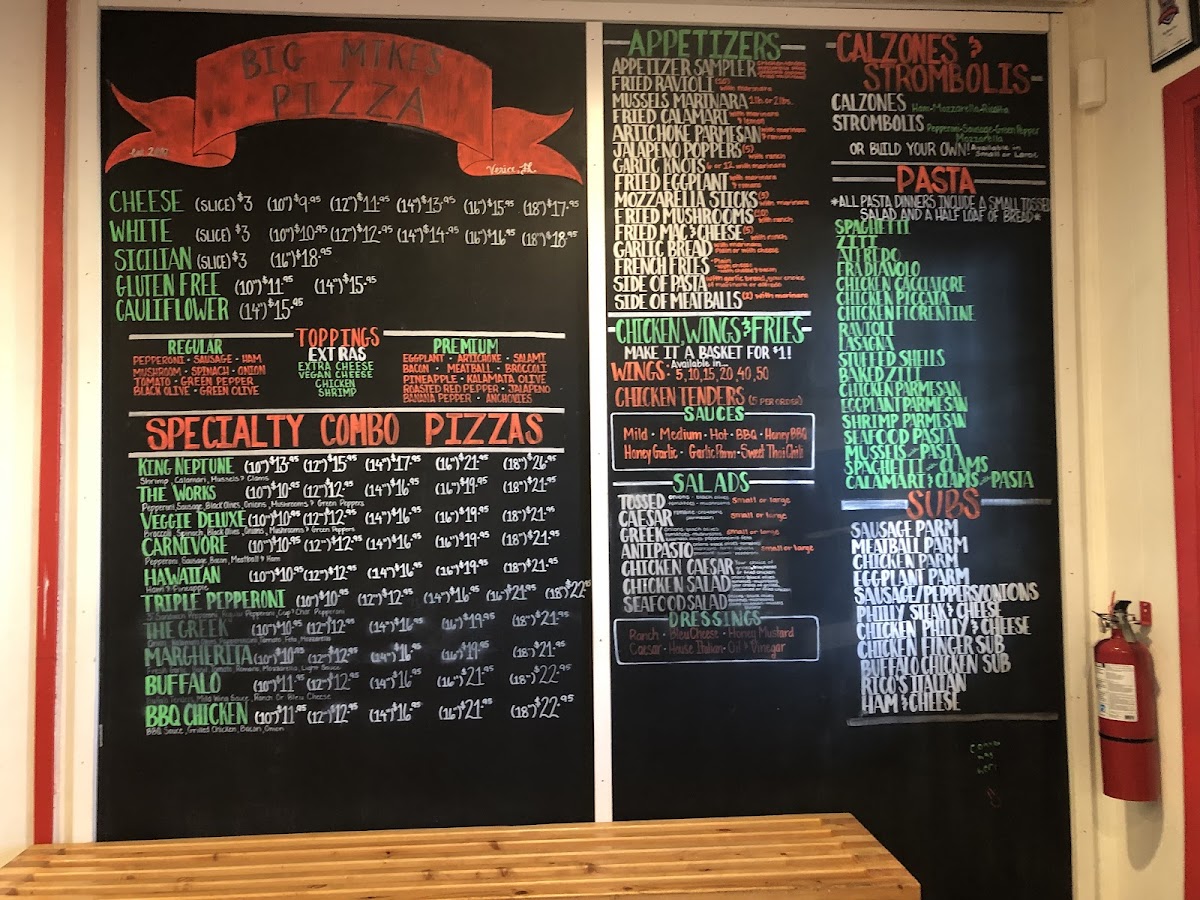 BIG MIKES
PIZZA
Est. 2017
Venice, FL
CHEESE (SLICE) $3 (10") $9.95 (12") $11.95 (14") $13.95 (16") $15.95 (18") $17.95
WHITE (SLICE) $3 (10") $10.95 (12") $12.95 (14") $14.95 (16") $16.95 (18") $18.95
SICILIAN (SLICE) $3 (16") $18.95
GLUTEN FREE (10") $11.95 (14") $15.95
CAULIFLOWER (14") $15.95
TOPPINGS
REGULAR
PEPPERONI • SAUSAGE • HAM
MUSHROOM • SPINACH • ONION
TOMATO • GREEN PEPPER
BLACK OLIVE • GREEN OLIVE
EXTRAS
EXTRA CHEESE
VEGAN CHEESE
CHICKEN
SHRIMP
PREMIUM
EGGPLANT • ARTICHOKE • SALAMI
BACON • MEATBALL • BROCCOLI
PINEAPPLE • KALAMATA OLIVE
ROASTED RED PEPPER • JALAPENO
BANANA PEPPER • ANCHOVIES
SPECIALTY COMBO PIZZAS
KING NEPTUNE (10") $13.95 (12") $15.95 (14") $17.95 (16") $21.95 (18") $26.95
Shrimp, Calamari, Mussels & Clams
THE WORKS (10") $10.95 (12") $12.95 (14") $16.95 (16") $19.95 (18") $21.95
Pepperoni, Sausage, Black Olives, Onions, Mushrooms & Green Peppers
VEGGIE DELUXE (10") $10.95 (12") $12.95 (14") $16.95 (16") $19.95 (18") $21.95
Broccoli, Spinach, Black Olives, Onions, Mushrooms & Green Peppers
CARNIVORE (10") $10.95 (12") $12.95 (14") $16.95 (16") $19.95 (18") $21.95
Pepperoni, Sausage, Bacon, Meatball & Ham
HAWAIIAN (10") $10.95 (12") $12.95 (14") $16.95 (16") $19.95 (18") $21.95
Ham & Pineapple
TRIPLE PEPPERONI (10") $10.95 (12") $12.95 (14") $16.95 (16") $21.95 (18") $22.95
Sandwich Pepperoni, Regular Pepperoni, Cup & Char Pepperoni
THE GREEK (10") $10.95 (12") $12.95 (14") $16.95 (16") $19.95 (18") $21.95
Tomato, Feta, Mozzarella
MARGHERITA (10") $10.95 (12") $12.95 (14") $16.95 (16") $19.95 (18") $21.95
Romano, Mozzarella, Light Sauce
BUFFALO (10") $11.95 (12") $12.95 (14") $16.95 (16") $21.95 (18") $22.95
Mild Wing Sauce, Ranch Or Bleu Cheese
BBQ CHICKEN (10") $11.95 (12") $12.95 (14") $16.95 (16") $21.95 (18") $22.95
BBQ Sauce, Grilled Chicken, Bacon, Onion
APPETIZERS
APPETIZER SAMPLER
FRIED RAVIOLI (10) with marinara
MUSSELS MARINARA 1 lb. or 2 lbs.
FRIED CALAMARI with marinara & lemon
ARTICHOKE PARMESAN with marinara & romano
JALAPENO POPPERS (5) with ranch
GARLIC KNOTS 6 or 12 with marinara
FRIED EGGPLANT with marinara & romano
MOZZARELLA STICKS (5) with marinara
FRIED MUSHROOMS (10) with ranch
FRIED MAC & CHEESE (5) with ranch
GARLIC BREAD with marinara Plain or with cheese
FRENCH FRIES • Plain • with cheese • with cheese & bacon
SIDE OF PASTA with garlic bread, your choice of marinara or alfredo
SIDE OF MEATBALLS (2) with marinara
CHICKEN, WINGS & FRIES
MAKE IT A BASKET FOR $1!
WINGS • Available in... 5, 10, 15, 20, 40, 50
CHICKEN TENDERS (5 PER ORDER)
SAUCES
Mild • Medium • Hot • BBQ • Honey BBQ
Honey Garlic • Garlic Parm • Sweet Thai Chili
SALADS
TOSSED small or large
CAESAR small or large
GREEK small or large
ANTIPASTO small or large
CHICKEN CAESAR
CHICKEN SALAD
SEAFOOD SALAD
DRESSINGS
Ranch • Bleu Cheese • Honey Mustard
Caesar • House Italian • Oil & Vinegar
CALZONES &
STROMBOLIS
CALZONES Ham-Mozzarella-Ricotta
STROMBOLIS Pepperoni-Sausage-Green Pepper
Mozzarella
OR BUILD YOUR OWN! Available in Small or Large
PASTA
*ALL PASTA DINNERS INCLUDE A SMALL TOSSED
SALAD AND A HALF LOAF OF BREAD*
SPAGHETTI
ZITI
ALFREDO
FRA DIAVOLO
CHICKEN CACCIATORE
CHICKEN PICCATA
CHICKEN FLORENTINE
RAVIOLI
LASAGNA
STUFFED SHELLS
BAKED ZITI
CHICKEN PARMESAN
EGGPLANT PARMESAN
SHRIMP PARMESAN
SEAFOOD PASTA
MUSSELS with PASTA
SPAGHETTI with CLAMS
CALAMARI & CLAMS with PASTA
SUBS
SAUSAGE PARM
MEATBALL PARM
CHICKEN PARM
EGGPLANT PARM
SAUSAGE/PEPPERS/ONIONS
PHILLY STEAK & CHEESE
CHICKEN PHILLY & CHEESE
CHICKEN FINGER SUB
BUFFALO CHICKEN SUB
RICO'S ITALIAN
HAM & CHEESE